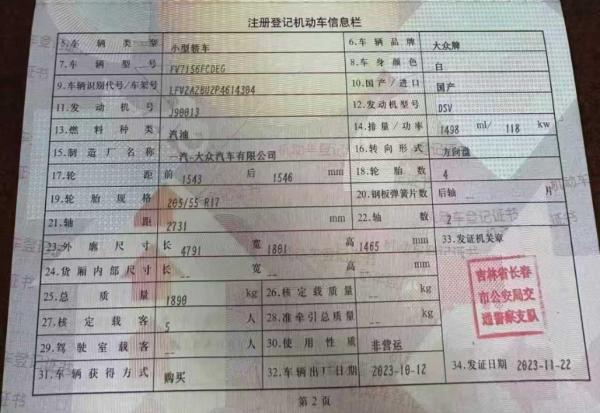 注册登记机动车信息栏
5.车辆类型 小型轿车 6.车辆品牌 大众牌
7.车辆型号 FV7156FCDEG 8.车身颜色 白
9.车辆识别代号/车架号 LFV2A2BU2P4614304 10.国产/进口 国产
11.发动机号 J90013 12.发动机型号 DSV
13.燃料种类 汽油 14.排量/功率 1498 ml/ 118 kw
15.制造厂名称 一汽-大众汽车有限公司 16.转向形式 方向盘
17.轮距 前 1543 后 1546 mm 18.轮胎数 4
19.轮胎规格 205/55 R17 20.钢板弹簧片数 后轴 -- 片
21.轴距 2731 mm 22.轴数 2
23.外廓尺寸 长 4791 宽 1801 高 1465 mm 33.发证机关章
24.货厢内部尺寸 长 -- 宽 -- 高 -- mm
吉林省长春
市公安局交
通警察支队
25.总质量 1890 kg 26.核定载质量 -- kg
27.核定载客 5 人 28.准牵引总质量 -- kg
29.驾驶室载客 -- 人 30.使用性质 非营运
31.车辆获得方式 购买 32.车辆出厂日期 2023-10-12 34.发证日期 2023-11-22
第2页